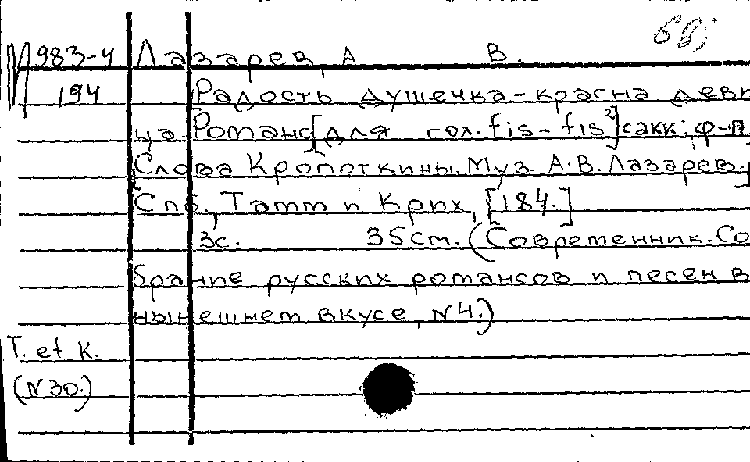 М983-4 Лазарев, А. В.
194 Радость душечка-красна деви
ца. Романс [для сол. fis-fis²] сакк: ф-п.
Слова Кропоткины. Муз. А.В. Лазарев.
Спб., Татт и Крих, [184.]
3с. 35см. (Современник. Со
брание русских романсов и песен в
нынешнем вкусе, №4.)
T. et K.
(№30.)